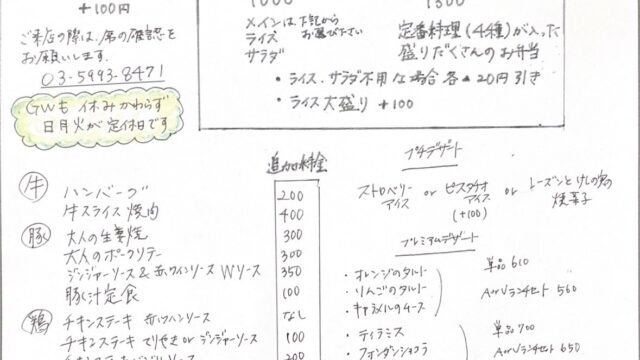 +100円
ご来店の際は、席の確認を
お願いします。
03-5993-8471
GWも 休みかわらず
日月火が定休日です
1000
メインは下記から
お選び下さい
ライス
サラダ
1300
定番料理(4種)が入った
盛りだくさんのお弁当
・ライス、サラダ不用な場合 各▲20円引き
・ライス大盛り +100
追加料金
牛 ハンバーグ 200
牛スライス焼肉 400
豚 大人の生姜焼 300
大人のポークソテー 300
ジンジャーソース&赤ワインソース Wソース 350
豚汁定食 100
鶏 チキンステーキ 赤ワインソース なし
チキンステーキ てりやき or ジンジャーソース 100
200
プチデザート
ストロベリーアイス or ピスタチオアイス (+100) or レーズンとけしの実の焼菓子
プレミアムデザート
・オレンジのタルト
・りんごのタルト
・キャラメルのムース
単品 610
AorVランチセット 560
・ティラミス
・フォンダンショコラ
単品 700
AorVランチセット 650